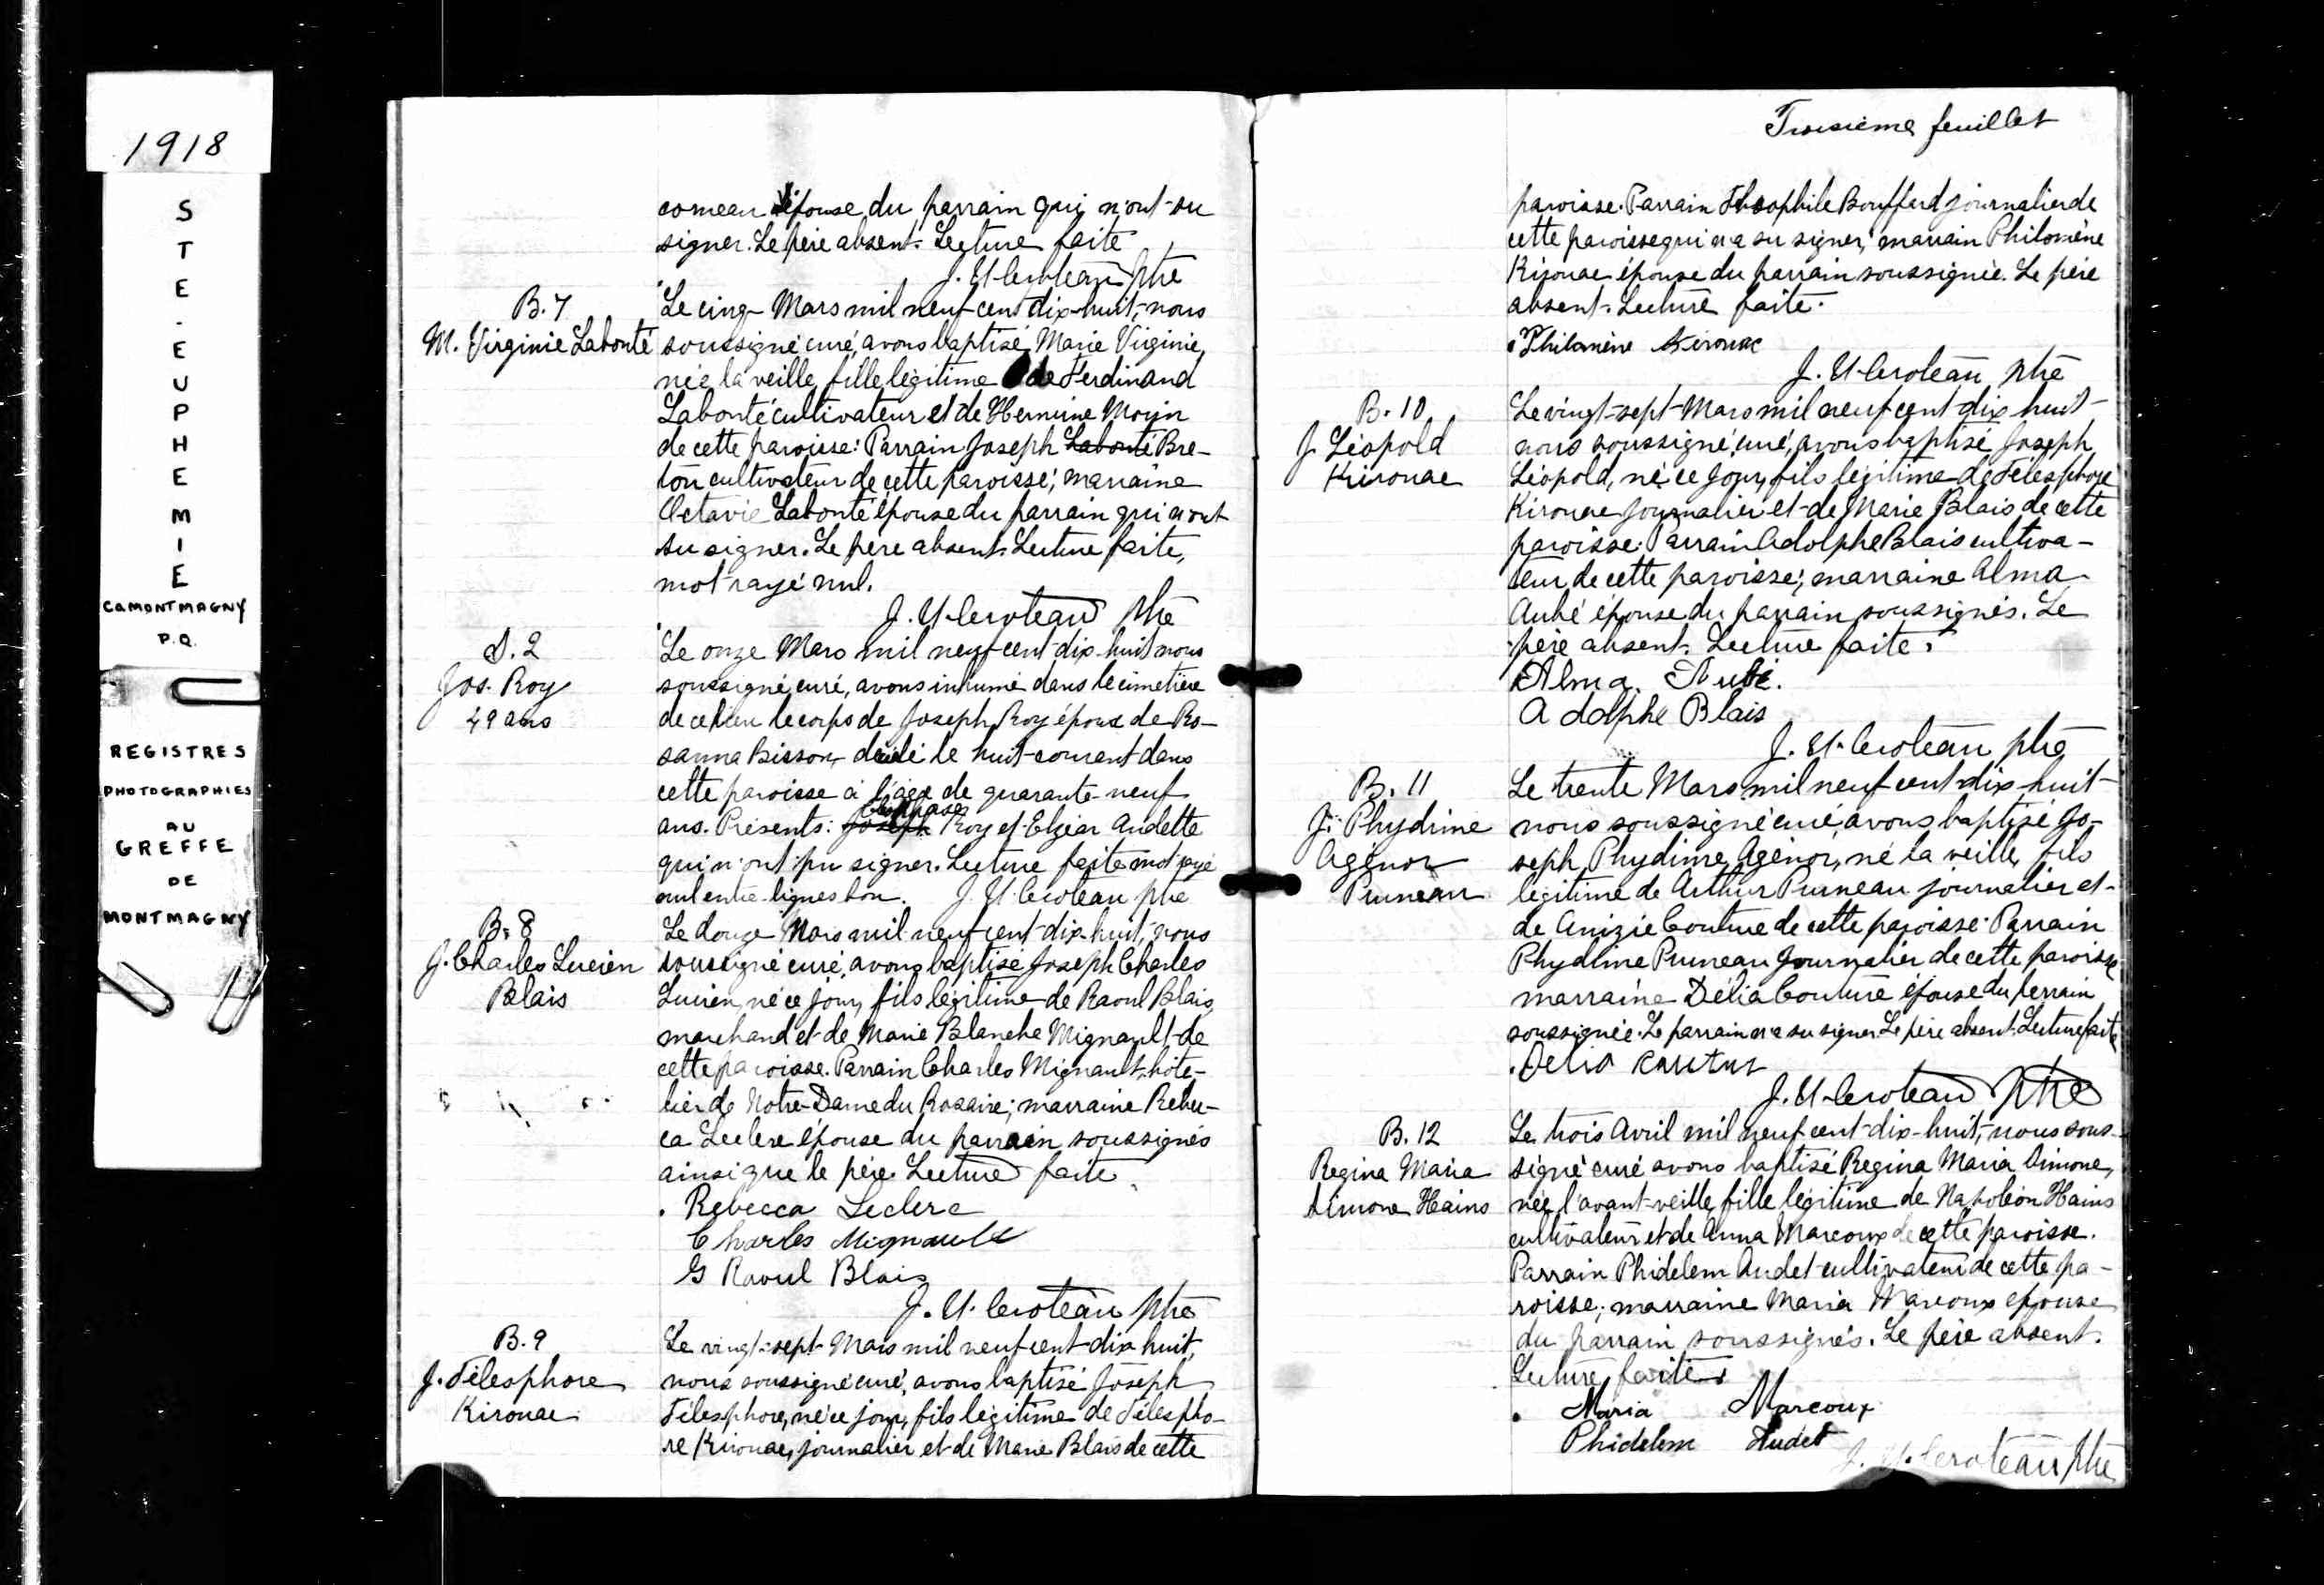 1918
STE-EUPHEMIE
CO MONTMAGNY
P.Q.
REGISTRES
PHOTOGRAPHIES
AU
GREFFE
DE
MONTMAGNY
comeau épouse du parrain qui n'ont su
signer. Le père absent. Lecture faite
J. U. Croteau ptre
B. 7
M. Virginie Labonté
Le cinq Mars mil neuf cent dix-huit, nous
soussigné curé, avons baptisé Marie Virginie,
née la veille, fille légitime de Ferdinand
Labonté cultivateur et de Hermine Morin
de cette paroisse. Parrain Joseph Labonté Bre-
ton cultivateur de cette paroisse; marraine
Octavie Labonté épouse du parrain qui n'ont
su signer. Le père absent. Lecture faite,
mot rayé nul.
J. U. Croteau ptre
S. 2
Jos. Roy
49 ans
Le onze Mars mil neuf cent dix-huit nous
soussigné, curé, avons inhumé dans le cimetière
de ce lieu le corps de Joseph Roy époux de Ro-
sanna Bisson, décédé le huit courant dans
cette paroisse à l'âge de quarante-neuf
ans. Présents: Joseph Roy et Elzéar Audette
qui n'ont pu signer. Lecture faite mot rayé
nul entre-lignes bon. J. U. Croteau ptre
B. 8
J. Charles Lucien
Blais
Le douze Mars mil neuf cent dix-huit, nous
soussigné curé, avons baptisé Joseph Charles
Lucien, né ce jour, fils légitime de Raoul Blais,
marchand et de Marie Blanche Mignault de
cette paroisse. Parrain Charles Mignault, hôte-
lier de Notre-Dame du Rosaire; marraine Rebec-
ca Leclerc épouse du parrain soussignés
ainsi que le père. Lecture faite.
Rebecca Leclerc
Charles Mignault
G Raoul Blais
J. U. Croteau ptre
B. 9
J. Télesphore
Kirouac
Le vingt-sept Mars mil neuf cent dix huit,
nous soussigné curé, avons baptisé Joseph
Télesphore, né ce jour, fils légitime de Télespho-
re Kirouac, journalier et de Marie Blais de cette
Troisième feuillet
paroisse. Parrain Théophile Bouffard journalier de
cette paroisse qui n'a su signer; marrain Philomène
Kirouac épouse du parrain soussignée. Le père
absent. Lecture faite.
Philomène Kirouac
J. U. Croteau ptre
B. 10
J Léopold
Kirouac
Le vingt-sept Mars mil neuf cent dix huit
nous soussigné, curé, avons baptisé Joseph
Léopold, né ce jour, fils légitime de Télesphore
Kirouac journalier et de Marie Blais de cette
paroisse. Parrain Adolphe Blais cultiva-
teur de cette paroisse; marraine Alma
Aubé épouse du parrain soussignés. Le
père absent. Lecture faite.
Alma Aubé.
Adolphe Blais
J. U. Croteau ptre
B. 11
J. Phydime
Agénor
Pruneau
Le trente Mars mil neuf cent dix huit
nous soussigné curé, avons baptisé Jo-
seph Phydime Agénor, né la veille, fils
légitime de Arthur Pruneau journalier et
de Anizie Couture de cette paroisse. Parrain
Phydime Pruneau journalier de cette paroisse
marraine Délia Couture épouse du parrain
soussignée. Le parrain n'a su signer. Le père absent. Lecture faite
Delia
J. U. Croteau ptre
B. 12
Regina Maria
Simone Hains
Le trois Avril mil neuf cent dix-huit, nous sous-
signé curé avons baptisé Regina Maria Simone,
née l'avant-veille, fille légitime de Napoléon Hains
cultivateur et de Anna Marcoux de cette paroisse.
Parrain Phidelem Audet cultivateur de cette pa-
roisse; marraine Maria Marcoux épouse
du parrain soussignés. Le père absent.
Lecture faite.
Maria Marcoux
Phidelem Audet
J. U. Croteau ptre